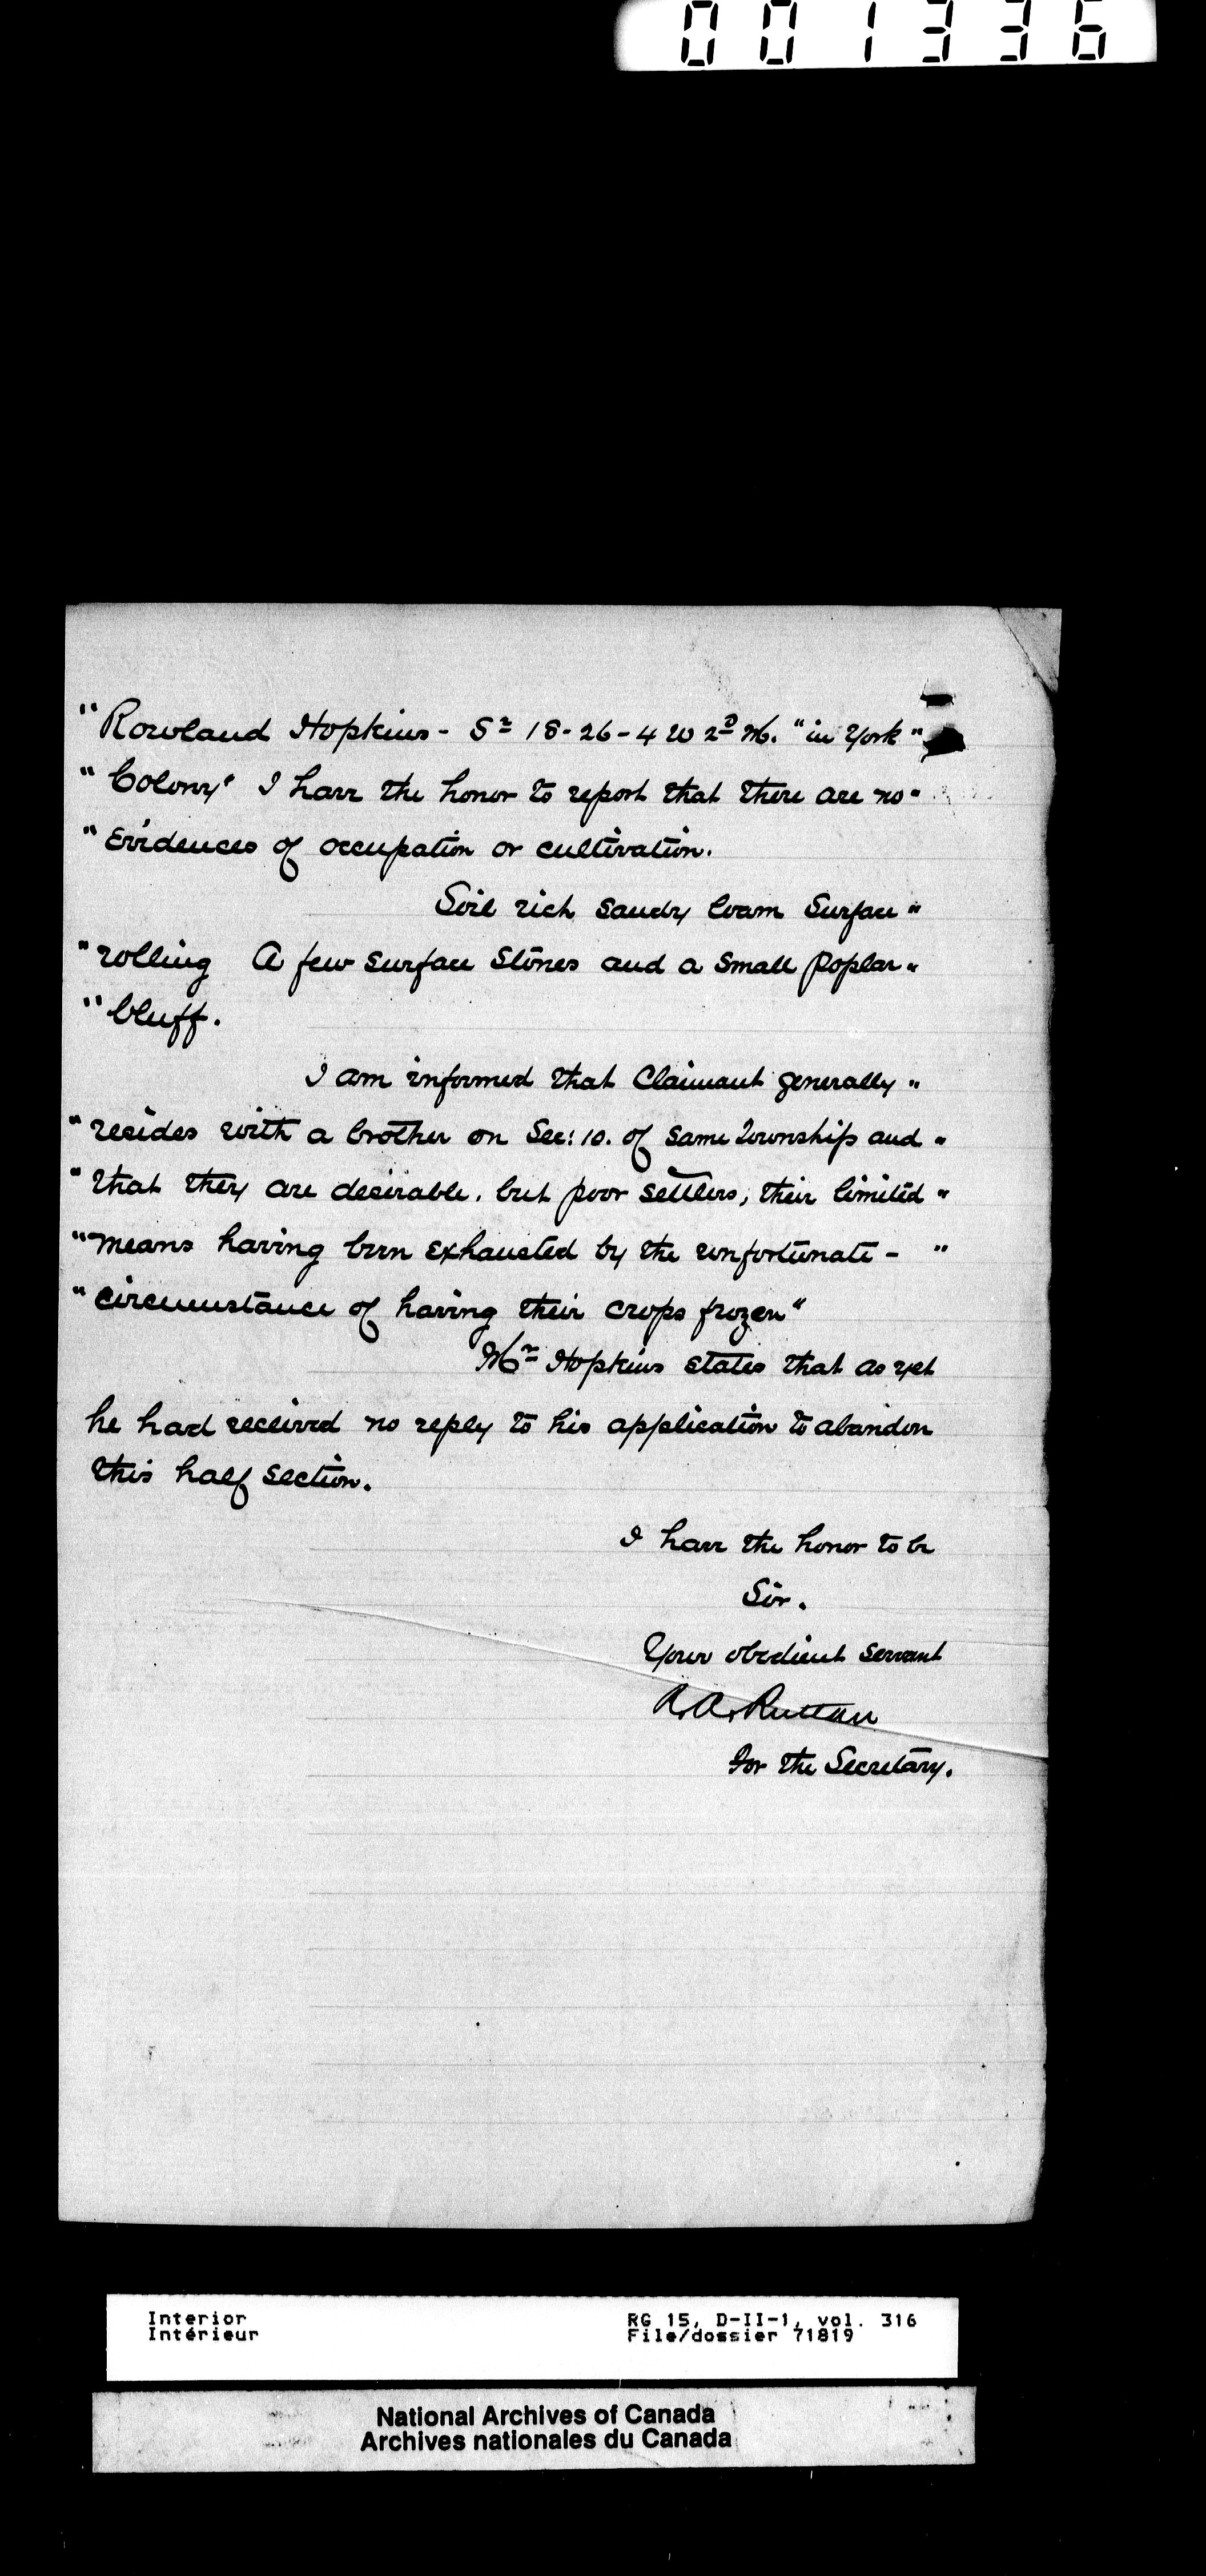 001336
"Rowland Hopkins - S½ 18-26-4 W 2ᴰ M. "in York"
"Colony" I have the honor to report that there are no"
"Evidences of occupation or cultivation.
Soil rich sandy loam Surface"
"rolling A few surface stones and a small poplar"
"bluff.
I am informed that Claimant generally"
"resides with a brother on Sec: 10. of same Township and"
"that they are desirable, but poor settlers, their limited"
"means having been exhausted by the unfortunate - "
"circumstance of having their crops frozen"
Mr Hopkins states that as yet
he had received no reply to his application to abandon
this half section.
I have the honor to be
Sir.
Your obedient servant
R.A. Ruttan
For the Secretary.
Interior RG 15, D-II-1, vol. 316
Intérieur File/dossier 71819
National Archives of Canada
Archives nationales du Canada